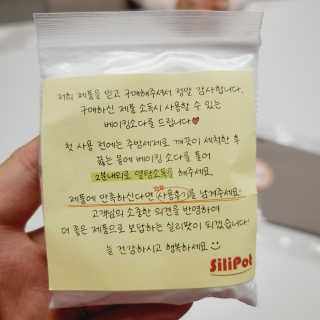 저희 제품을 믿고 구매해주셔서 정말 감사합니다.
구매하신 제품 소독시 사용할 수 있는
베이킹소다를 드립니다♥
첫 사용 전에는 주방세제로 깨끗이 세척한 후
끓는 물에 베이킹 소다를 풀어
2분내외로 열탕소독을 해주세요.
제품에 만족하신다면 사용후기를 남겨주세요.
고객님의 소중한 의견을 반영하여
더 좋은 제품으로 보답하는 실리팟이 되겠습니다!
늘 건강하시고 행복하세요
SiliPot